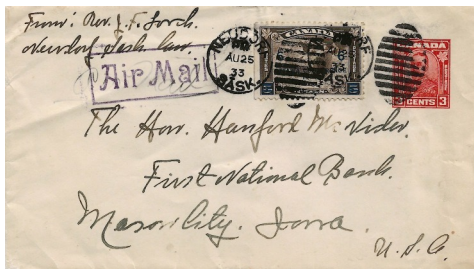 From: Rev. J. F.
Neudorf Sask. Can.
Air Mail
NEUDORF
PM
AU 25
33
SASK.
CANADA
6
CANADA
3 CENTS 3
The Hon. Hanford McNider.
First National Bank.
Mason City, Iowa.
U. S. A.